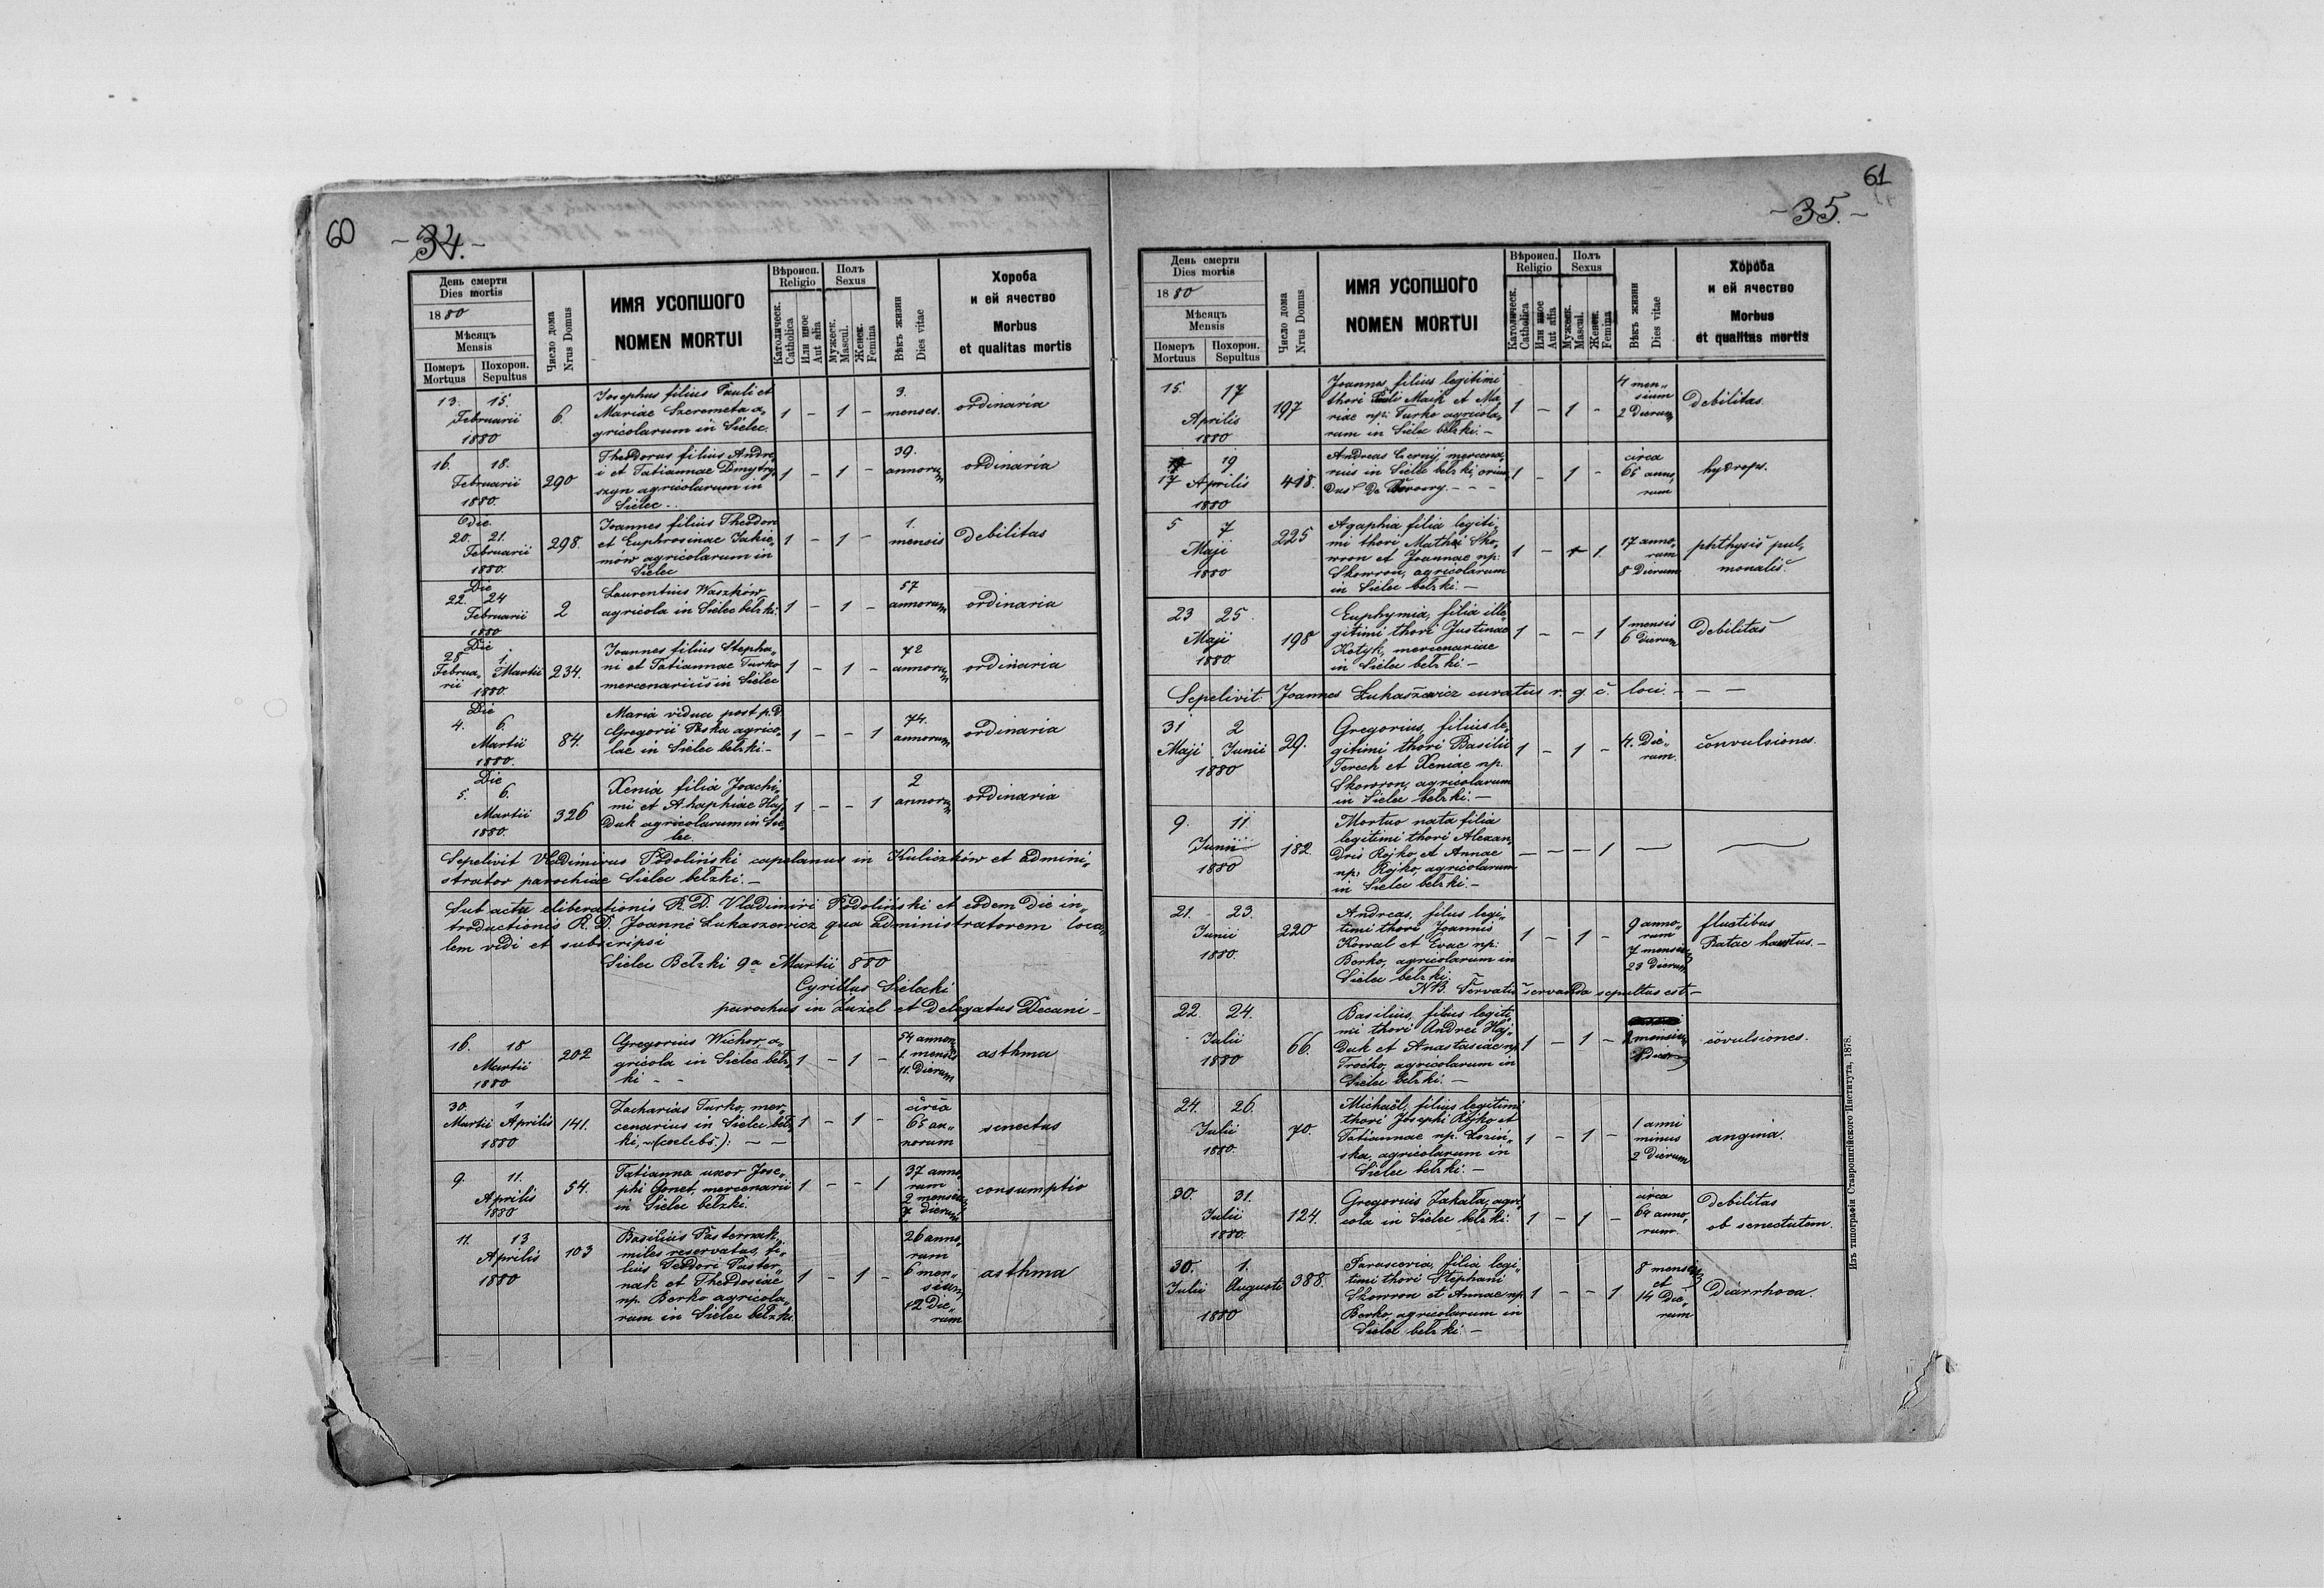 60
- 34. -
День смерти
Dies mortis
1880
Мѣсяцъ
Mensis
Померъ
Mortuus
Похорон.
Sepultus
Число дома
Nrus Domus
ИМЯ УСОПШОГО
NOMEN MORTUI
Вѣроисп.
Religio
Католическ.
Catholica
Или иное
Aut alia
Полъ
Sexus
Мужеск.
Mascul.
Женск.
Femina
Вѣкъ жизни
Dies vitae
Хороба
и ей ячество
Morbus
et qualitas mortis
13. 15.
Februarii
1880
6.
Josephus filius Pauli et
Mariae Szeremeta a„
gricolarum in Sielec.
1 - 1 -
3.
menses.
ordinaria
16. 18.
Februarii
1880.
290
Theodorus filius Andre„
i et Tatiannae Dmytry„
szyn agricolarum in
Sielec..
1 - 1 -
39.
annorum
ordinaria
Die
20. 21.
Februarii
1880.
298.
Joannes filius Theodori
et Euphrosinae Jakie„
mów agricolarum in
Sielec
1 - 1 -
1.
mensis
debilitas
Die
22. 24
Februarii
1880
2
Laurentius Waszków
agricola in Sielec bełzki.
1 - 1 -
57
annorum
ordinaria
Die
28 1.
Februa„ Martii
rii
1880.
234.
Joannes filius Stepha„
ni et Tatiannae Turko
mercenarius in Sielec
1 - 1 -
72
annorum
ordinaria
Die
4. 6.
Martii
1880.
84.
Maria vidua post p.d.
Gregorii Paska agrico„
lae in Sielec bełzki-
1 - - 1
74.
annorum
ordinaria
Die
5. 6.
Martii
1880.
326
Xenia filia Joachi„
mi et Ahaphiae Haj„
duk agricolarum in Sie„
lec.
1 - - 1
2
annorum
ordinaria
Sepelivit Vladimirus Podoliński capelanus in Kuliczków et admini„
strator parochiae Sielec bełzki. -
Sub actu eliberationis R.D. Vladimiri Podoliński et eodem die in„
troductionis R.D. Joanne Łukaszewicz qua administratorem loca„
lem vidi et subscripsi
Sielec Bełzki 9a Martii 880
Cyrillus Sielecki
parochus in Żużel et delegatus Decani -
16. 18
Martii
1880
202
Gregorius Wichor, a„
gricola in Sielec bełz„
ki - -
1 - 1 -
54 annor.
1 mensis
11. dierum
asthma
30. 1
Martii Aprilis
1880
141.
Zacharias Turko, mer„
cenarius in Sielec beł„
ki, (coelebs.): - -
1 - 1 -
circa
65 an„
norum
senectus
9. 11.
Aprilis
1880
54.
Tatianna uxor Jose„
phi Gonet, mercenarii
in Sielec bełzki.
1 - - 1
37 anno„
rum
2 mensium
7 dierum
consumptio
11. 13
Aprilis
1880
103
Basilius Pasternak,
miles reservatus, fi„
lius Teodori Paster„
nak et Theodosiae
np. Berko agricola„
rum in Sielec bełzki.
1 - 1 -
26 anno„
rum
6 men„
sium,
12 die„
rum
asthma
61
- 35. -
День смерти
Dies mortis
1880
Мѣсяцъ
Mensis
Померъ
Mortuus
Похорон.
Sepultus
Число дома
Nrus Domus
ИМЯ УСОПШОГО
NOMEN MORTUI
Вѣроисп.
Religio
Католическ.
Catholica
Или иное
Aut alia
Полъ
Sexus
Мужеск.
Mascul.
Женск.
Femina
Вѣкъ жизни
Dies vitae
Хороба
и ей ячество
Morbus
et qualitas mortis
15. 17
Aprilis
1880
197
Joannes, filius legitimi
thori Pauli Maik et Ma
riae np: Turko agricola„
rum in Sielec bełzki. -
1 - 1 -
4 men„
sium
2 dierum
debilitas.
19
17 Aprilis
1880
418.
Andreas Czerny, mercena„
rius in Sielec bełzki, oriun„
dus de - - -
1 - 1 -
circa
65 anno„
rum
hydrops.
5 7
Maji
1880
225
Agaphia filia legiti„
mi thori Mathei Sko„
wron et Joannae np:
Skowron, agricolarum
in Sielec bełzki. -
1 - 1
17 anno„
rum
8 dierum
phthysis pul„
monalis.
23 25.
Maji
1880.
198
Euphymia, filia ille„
gitimi thori Justinae
Kotyk, mercenariae
in Sielec bełzki. -
1 - - 1
1 mensis
6 dierum
debilitas
Sepelivit: Joannes Łukaszewicz curatus r. g. c. loci. - - -
31 2
Maji Junii
1880
29.
Gregorius, filius le„
gitimi thori Basilii
Terech et Xeniae np.
Skowron, agricolarum
in Sielec bełzki. -
1 - 1 -
4. die„
rum.
convulsiones.
9. 11.
Junii
1880
182.
Mortuo nata filia
legitimi thori Alexan„
dris Rojko, et Annae
np: Rojko, agricolarum
in Sielec bełzki. -
- - - 1
21. - 23.
Junii
1880.
220
Andreas, filius legi„
timi thori Joannis
Kowal et Evae np:
Berko, agricolarum in
Sielec bełzki.
1 - 1 -
9 anno„
rum
7 mensium
23 dierum
fluctibus
Ratae haustus. -
NB. Servatis servandis sepultus est -
22. 24.
Julii
1880
66.
Basilius, filius legiti„
mi thori Andrei Haj„
duk et Anastasiae np.
Troćko, agricolarum in
Sielec bełzki. -
1 - 1 -
2 mensium
covulsiones.
24. 26.
Julii
1880.
70.
Michaël, filius legitimi
thori Josephi Rojko et
Tatiannae np. Łoziń„
ska, agricolarum in
Sielec bełzki. -
1 - 1 -
1 anni
minus
2 dierum
angina.
30. 31.
Julii
1880.
124.
Gregorius Zakała, agri„
cola in Sielec bełzki.
1 - 1 -
circa
anno„
rum.
debilitas
ob senectutem.
30. 1.
Julii Augusti
1880
388.
Parascevia, filia legi„
timi thori Stephani
Skowron et Annae np.
Berko, agricolarum in
Sielec bełzki. -
1 - - 1
8 mensium
et
14 die„
rum
diarrhoea.
Изъ типографіи Ставропигійского Института, 1878.